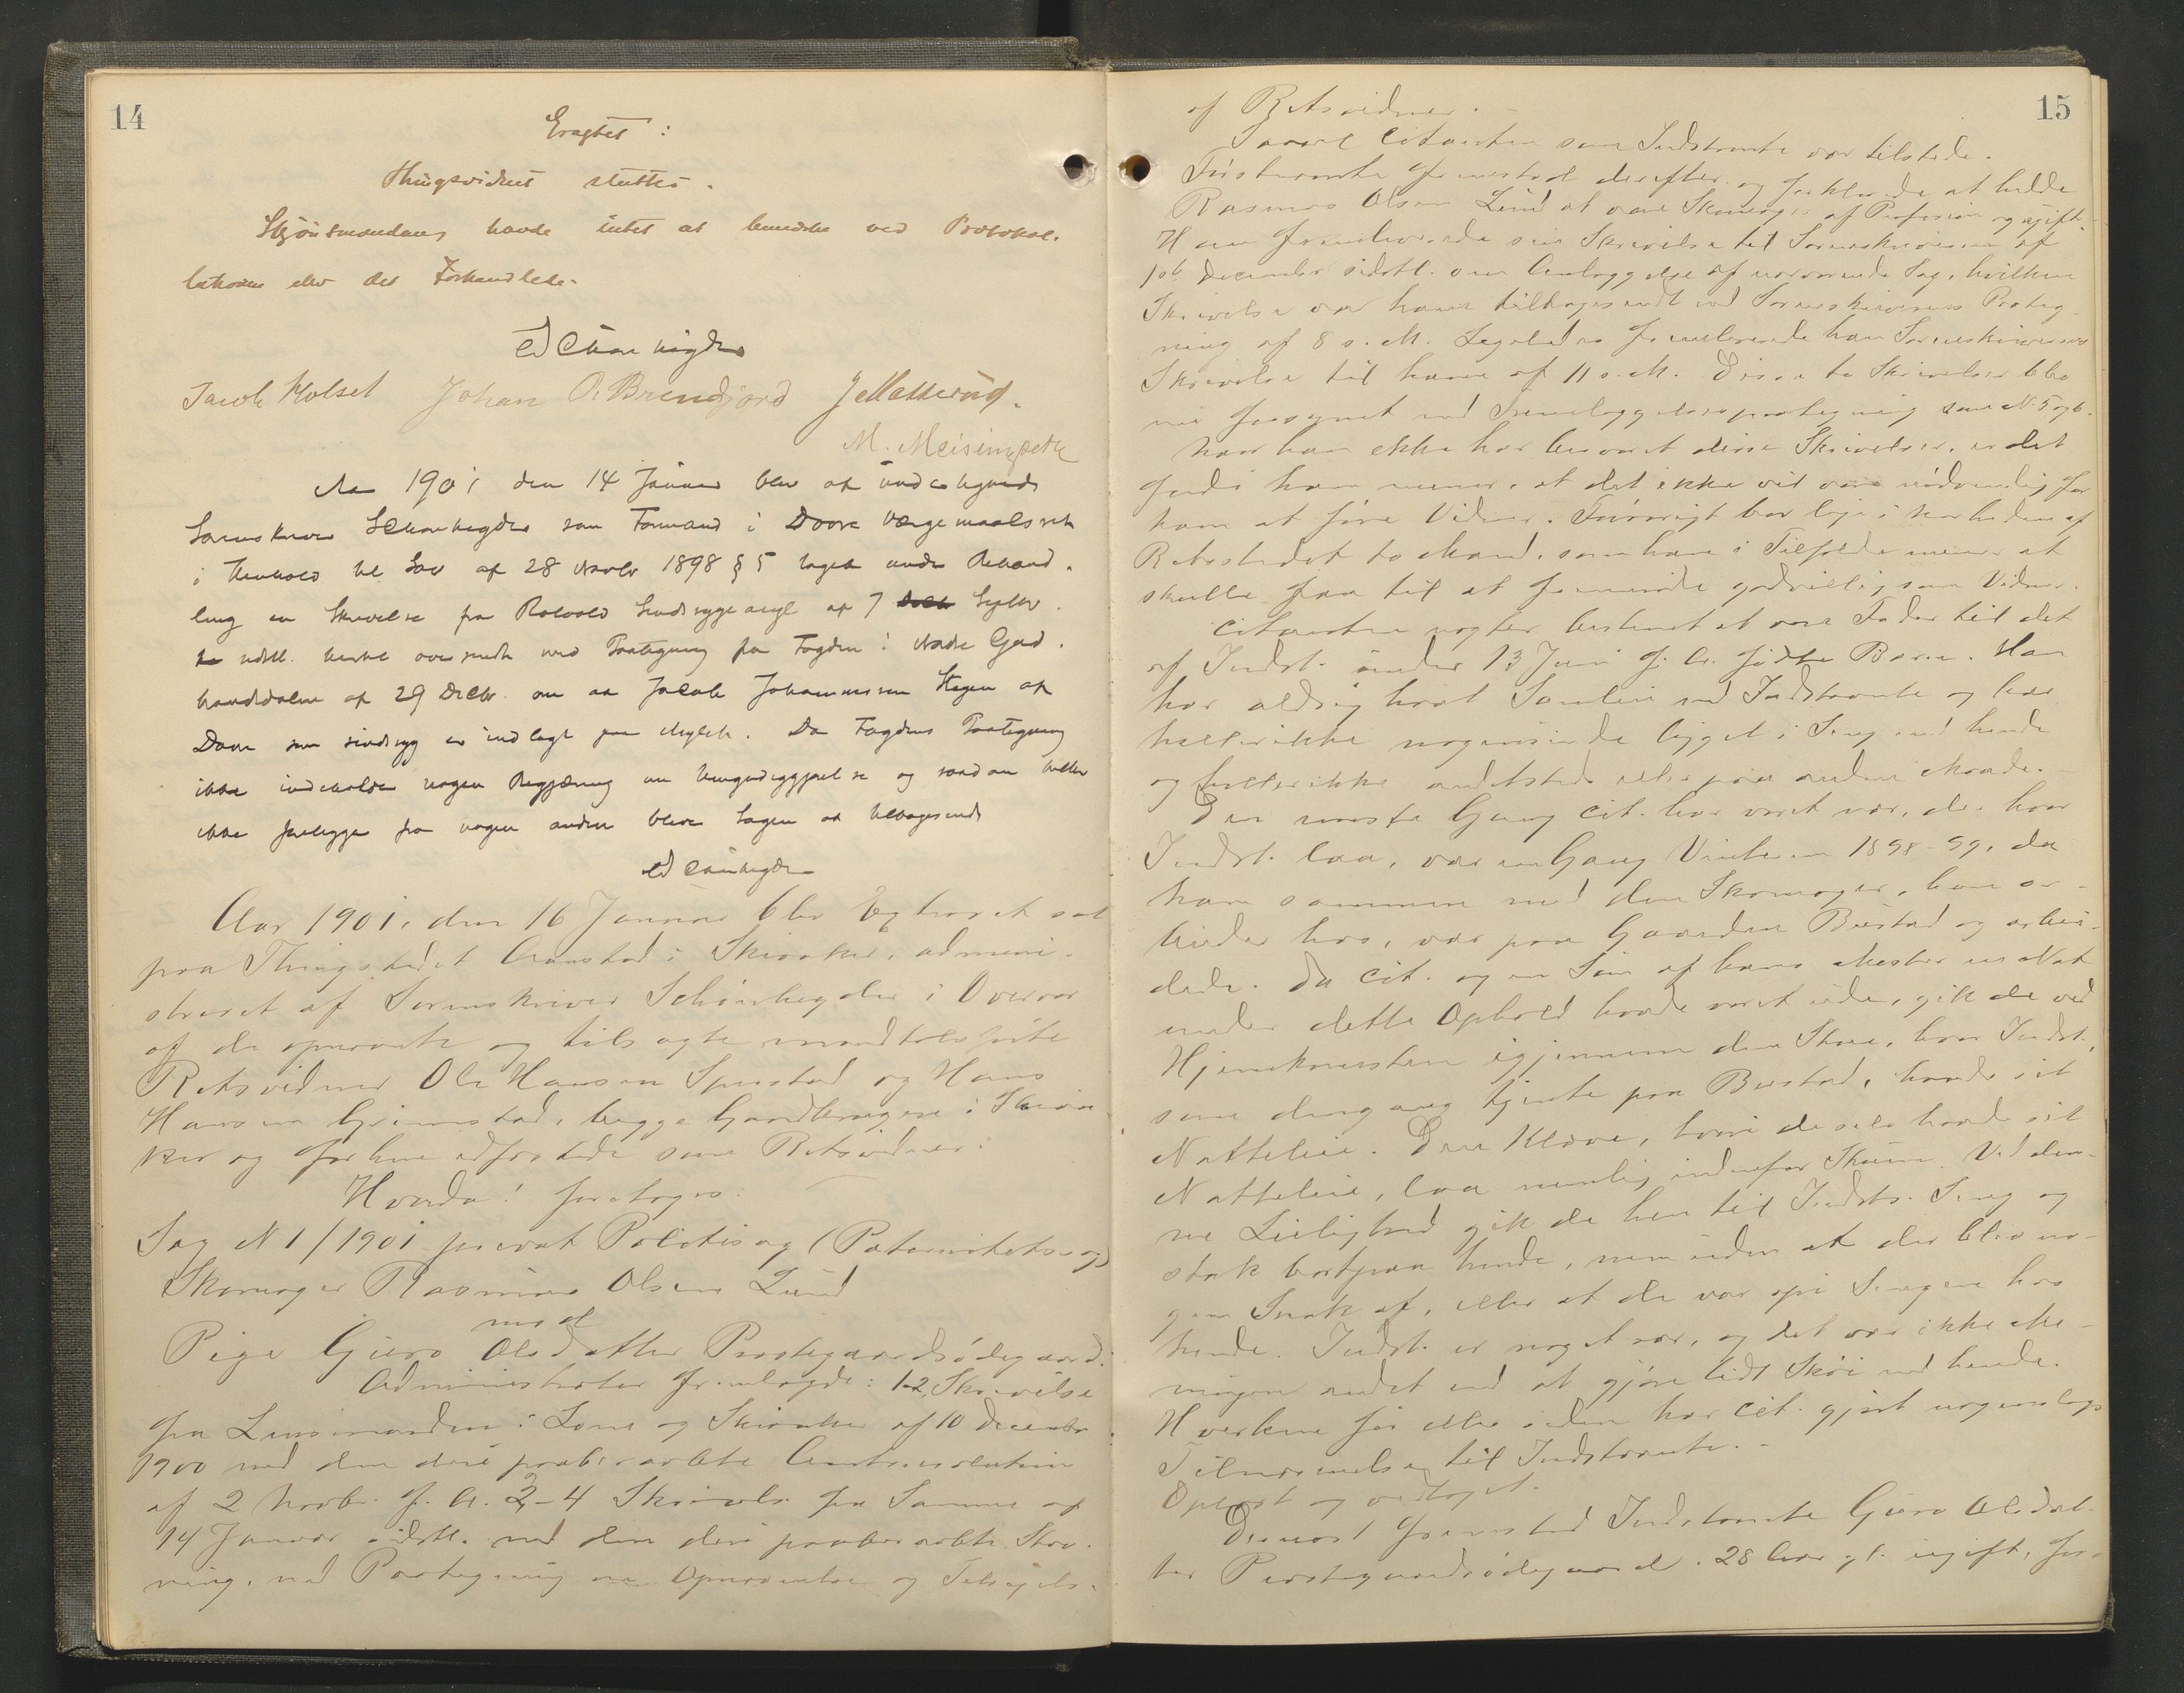 14
Eragtet:
Thingsvidnet sluttes.
Skjönsmændene havde intet at bemærke ved Protokol-
lationen eller det Forhandlede.
Jacob Kolset Johan O. Brendjord J Mætterud.
M. Meisingseth
Aar 1901 den 14 Januar blev af undertegnede
Sorenskriver som Formand i Dovre Værgemaalsret
i Henhold til Lov af 28 Novbr 1898 § 5 taget under Behand-
ling en Skrivelse fra Rotvold Sindsygeasyl af 7
sidstl. hertil oversendt med Paategning fra Fogden i Nordre Gud-
brandsdalen af 29 Decbr. om at Jacob Johannessen Hagen af
Dovre som sindsyg er indlagt paa Asylet. Da Fogdens Paategning
ikke indeholder nogen Begjæring om Umyndiggjørelse og saadan heller
ikke foreligger fra nogen anden bliver Sagen at tilbagesende
Aar 1901, den 16 Januar blev Extraret sat
paa Thingstedet Aanstad i Skiaaker, admini-
streret af Sorenskriver Schönheyder i Overvær
af de opnævnte og tilsagte
Retsvidner Ole Hansen Sperstad og Hans
Hansen Grimstad, begge Gaardbrugere i Skiaa-
ker og forhen edfæstede som Retsvidner.
Hvorda! foretoges:
Sag N 1/1901 privat Politisag (Paternitetssag)
Skomager Rasmus Olsen Lund
mod
Pige Guro Olsdatter Prestegaardsödegaard.
Administrator fremlagde: 1-2, Skrivelse
fra Lensmanden i Lom og Skiaaker af 10 December
1900 med den deri paaberaabte Amtsresolution
af 2 Novbr. f. A. 3-4 Skrivelse fra Samme af
14 Januar sidstl. med den deri paaberaabte Stæv-
ning, med Paategning om Opnævnelse og Tilsigelse
15
af Retsvidner. –
Saavel Citanten som Indstævnte var tilstede.
Førstnævnte fremstod derefter og forklarede at hedde
Rasmus Olsen Lund at være Skomager af Profession og ugift.
Han fremleverede sin Skrivelse til Sorenskriveren af
1ste December sidstl. om Anlæggelse af nærværende Sag, hvilken
Skrivelse var ham tilbagesendt med Sorenskriverens Paateg-
ning af 8 s. M. Ligeledes fremleverede han Sorenskriverens
Skrivelse til ham af 11 s. M. Disse to Skrivelser blev
nu forsynet med Fremlæggelsespaategning som N. 5 og 6.
Naar han ikke har besvaret disse Skrivelser, er det
fordi han mener, at det ikke vil være nödvendig for
ham at före Vidner. Forövrigt bor lige i Nærheden af
Retsstedet to Mænd, som han i Tilfælde mener at
skulle faa til at fremmöde godvillig som Vidner.
Citanten negter bestemt at være Fader til det
af Indst. under 13 Juni f. A. födte Barn. Han
har aldrig havt Samleie med Indstævnte og har
heller ikke nogensinde ligget i Seng med hende
og heller ikke andetsteds eller paa anden Maade. –
Den eneste Gang Cit. har været nær, der hvor
Indst. laa, var en Gang Vinteren 1898-99, da
han sammen med den Skomager, han ar-
beider hos, var paa Gaarden Bustad og arbei-
dede. Da Cit. og en Sön af hans Mester en Nat
under dette Ophold havde været ude, gik de ved
Hjemkomsten igjennem den Stue, hvor Indst.,
som dengang tjente paa Bustad, havde sit
Natteleie. Den Kleve, hvori de selv havde sit
Natteleie, laa nemlig indenfor Stuen. Ved den-
ne Leilighed gik de hen til Indsts. Seng og
stak bortpaa hende, men uden at der blev no-
gen Snak af, eller at de var opi Sengen hos
hende. Indst. er noget rar, og det var ikke Me-
ningen andet end at gjöre lidt Sköi med hende.
Hverken før eller siden har Cit. gjort nogenslags
Tilnærmelse til Indstævnte. –
Oplæst og vedtaget.
Dernæst fremstod Indstævnte Guro Olsdat-
ter Prestegaardsödegaard. 28 Aar gl. ugift, for-